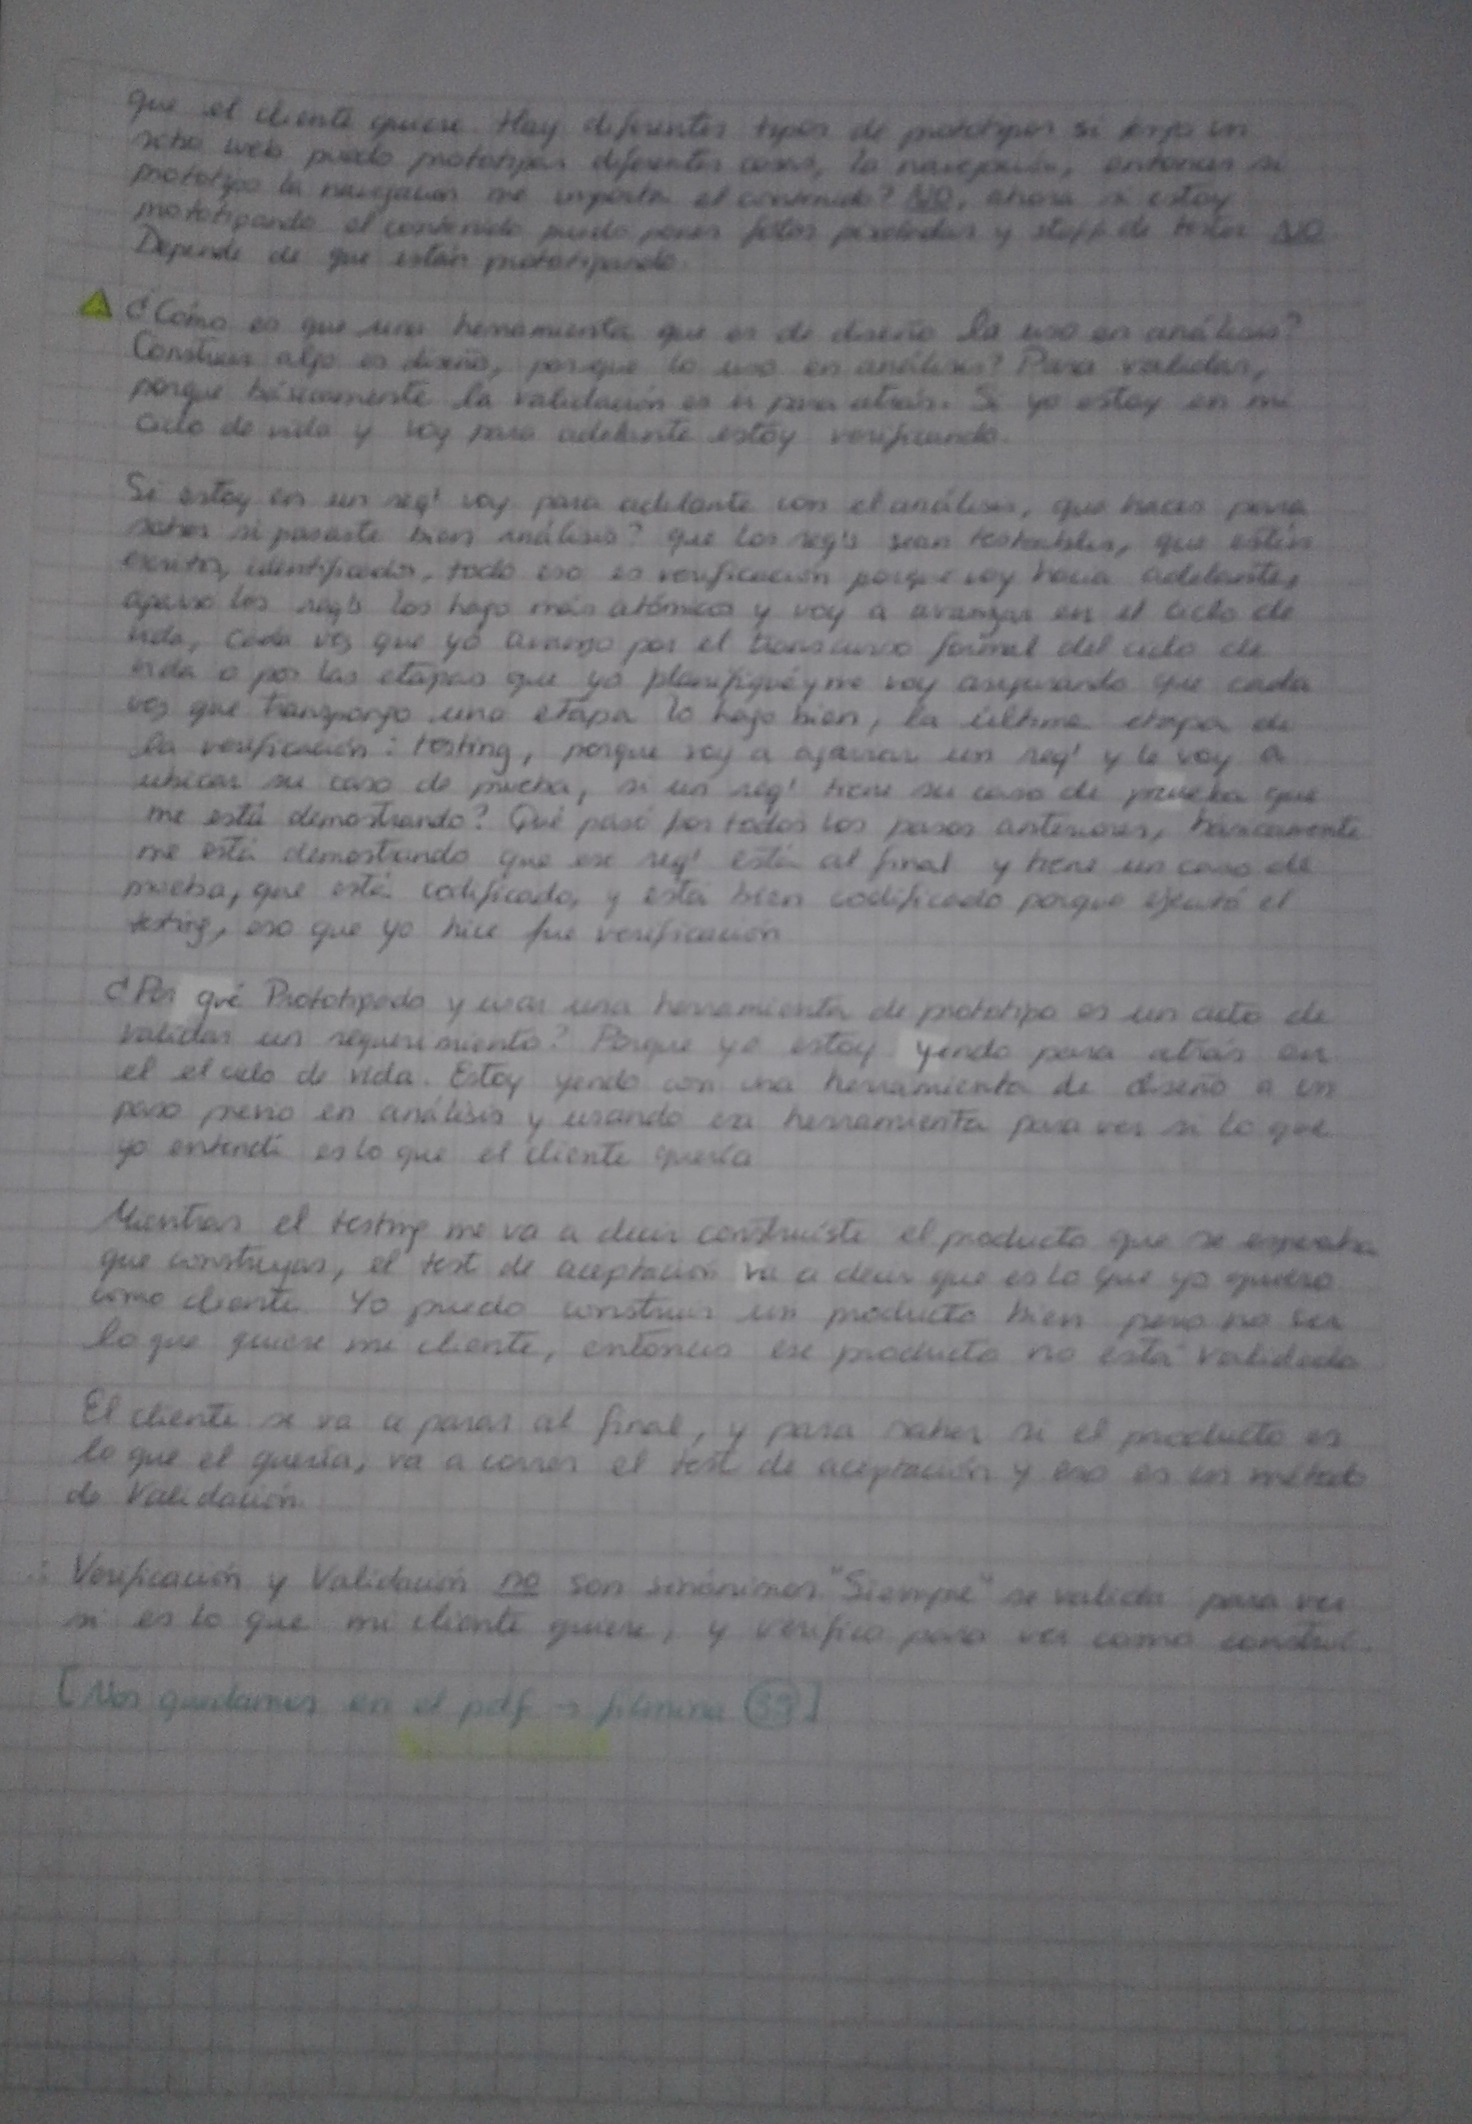 que el cliente quiere. Hay diferentes tipos de prototipos si tengo un
sitio web puedo prototipar diferentes cosas, la navegación, entonces si
prototipo la navegación me importa el contenido? NO, ahora si estoy
prototipando el contenido puedo poner fotos pixeladas y stuff de texto NO
Depende de que están prototipando.
¿Cómo es que una herramienta que es de diseño la uso en análisis?
Construir algo es diseño, porque lo uso en análisis? Para validar,
porque básicamente la validación es ir para atrás. Si yo estoy en mi
ciclo de vida y voy para adelante estoy verificando.
Si estoy en un req' voy para adelante con el análisis, que haces para
saber si pasaste bien análisis? que los req's sean testeables, que estén
escritos, identificados, todo eso es verificación porque voy hacia adelante,
agarro los req's los hago más atómicos y voy a avanzar en el ciclo de
vida, cada vez que yo avanzo por el transcurso formal del ciclo de
vida o por las etapas que yo planifiqué y me voy asegurando que cada
vez que transpongo una etapa lo hago bien, la última etapa de
la verificación: testing, porque voy a agarrar un req' y le voy a
ubicar su caso de prueba, si un req' tiene su caso de prueba que
me está demostrando? Qué pasó por todos los pasos anteriores, básicamente
me está demostrando que ese req' está al final y tiene un caso de
prueba, que está codificado, y está bien codificado porque ejecutó el
testing, eso que yo hice fue verificación
¿Por qué Prototipado y usar una herramienta de prototipo es un acto de
validar un requerimiento? Porque yo estoy yendo para atrás en
el el ciclo de vida. Estoy yendo con una herramienta de diseño a un
paso previo en análisis y usando esa herramienta para ver si lo que
yo entendí es lo que el cliente quería
Mientras el testing me va a decir construiste el producto que se esperaba
que construyas, el test de aceptación va a decir que es lo que yo quiero
como cliente. Yo puedo construir un producto bien pero no ser
lo que quiere mi cliente, entonces ese producto no está validado
El cliente se va a parar al final, y para saber si el producto es
lo que él quería, va a correr el test de aceptación y eso es un método
de Validación.
∴ Verificación y Validación no son sinónimos "Siempre" se valida para ver
si es lo que mi cliente quiere, y verifico para ver como construí.
[Nos quedamos en el pdf → filmina 39]